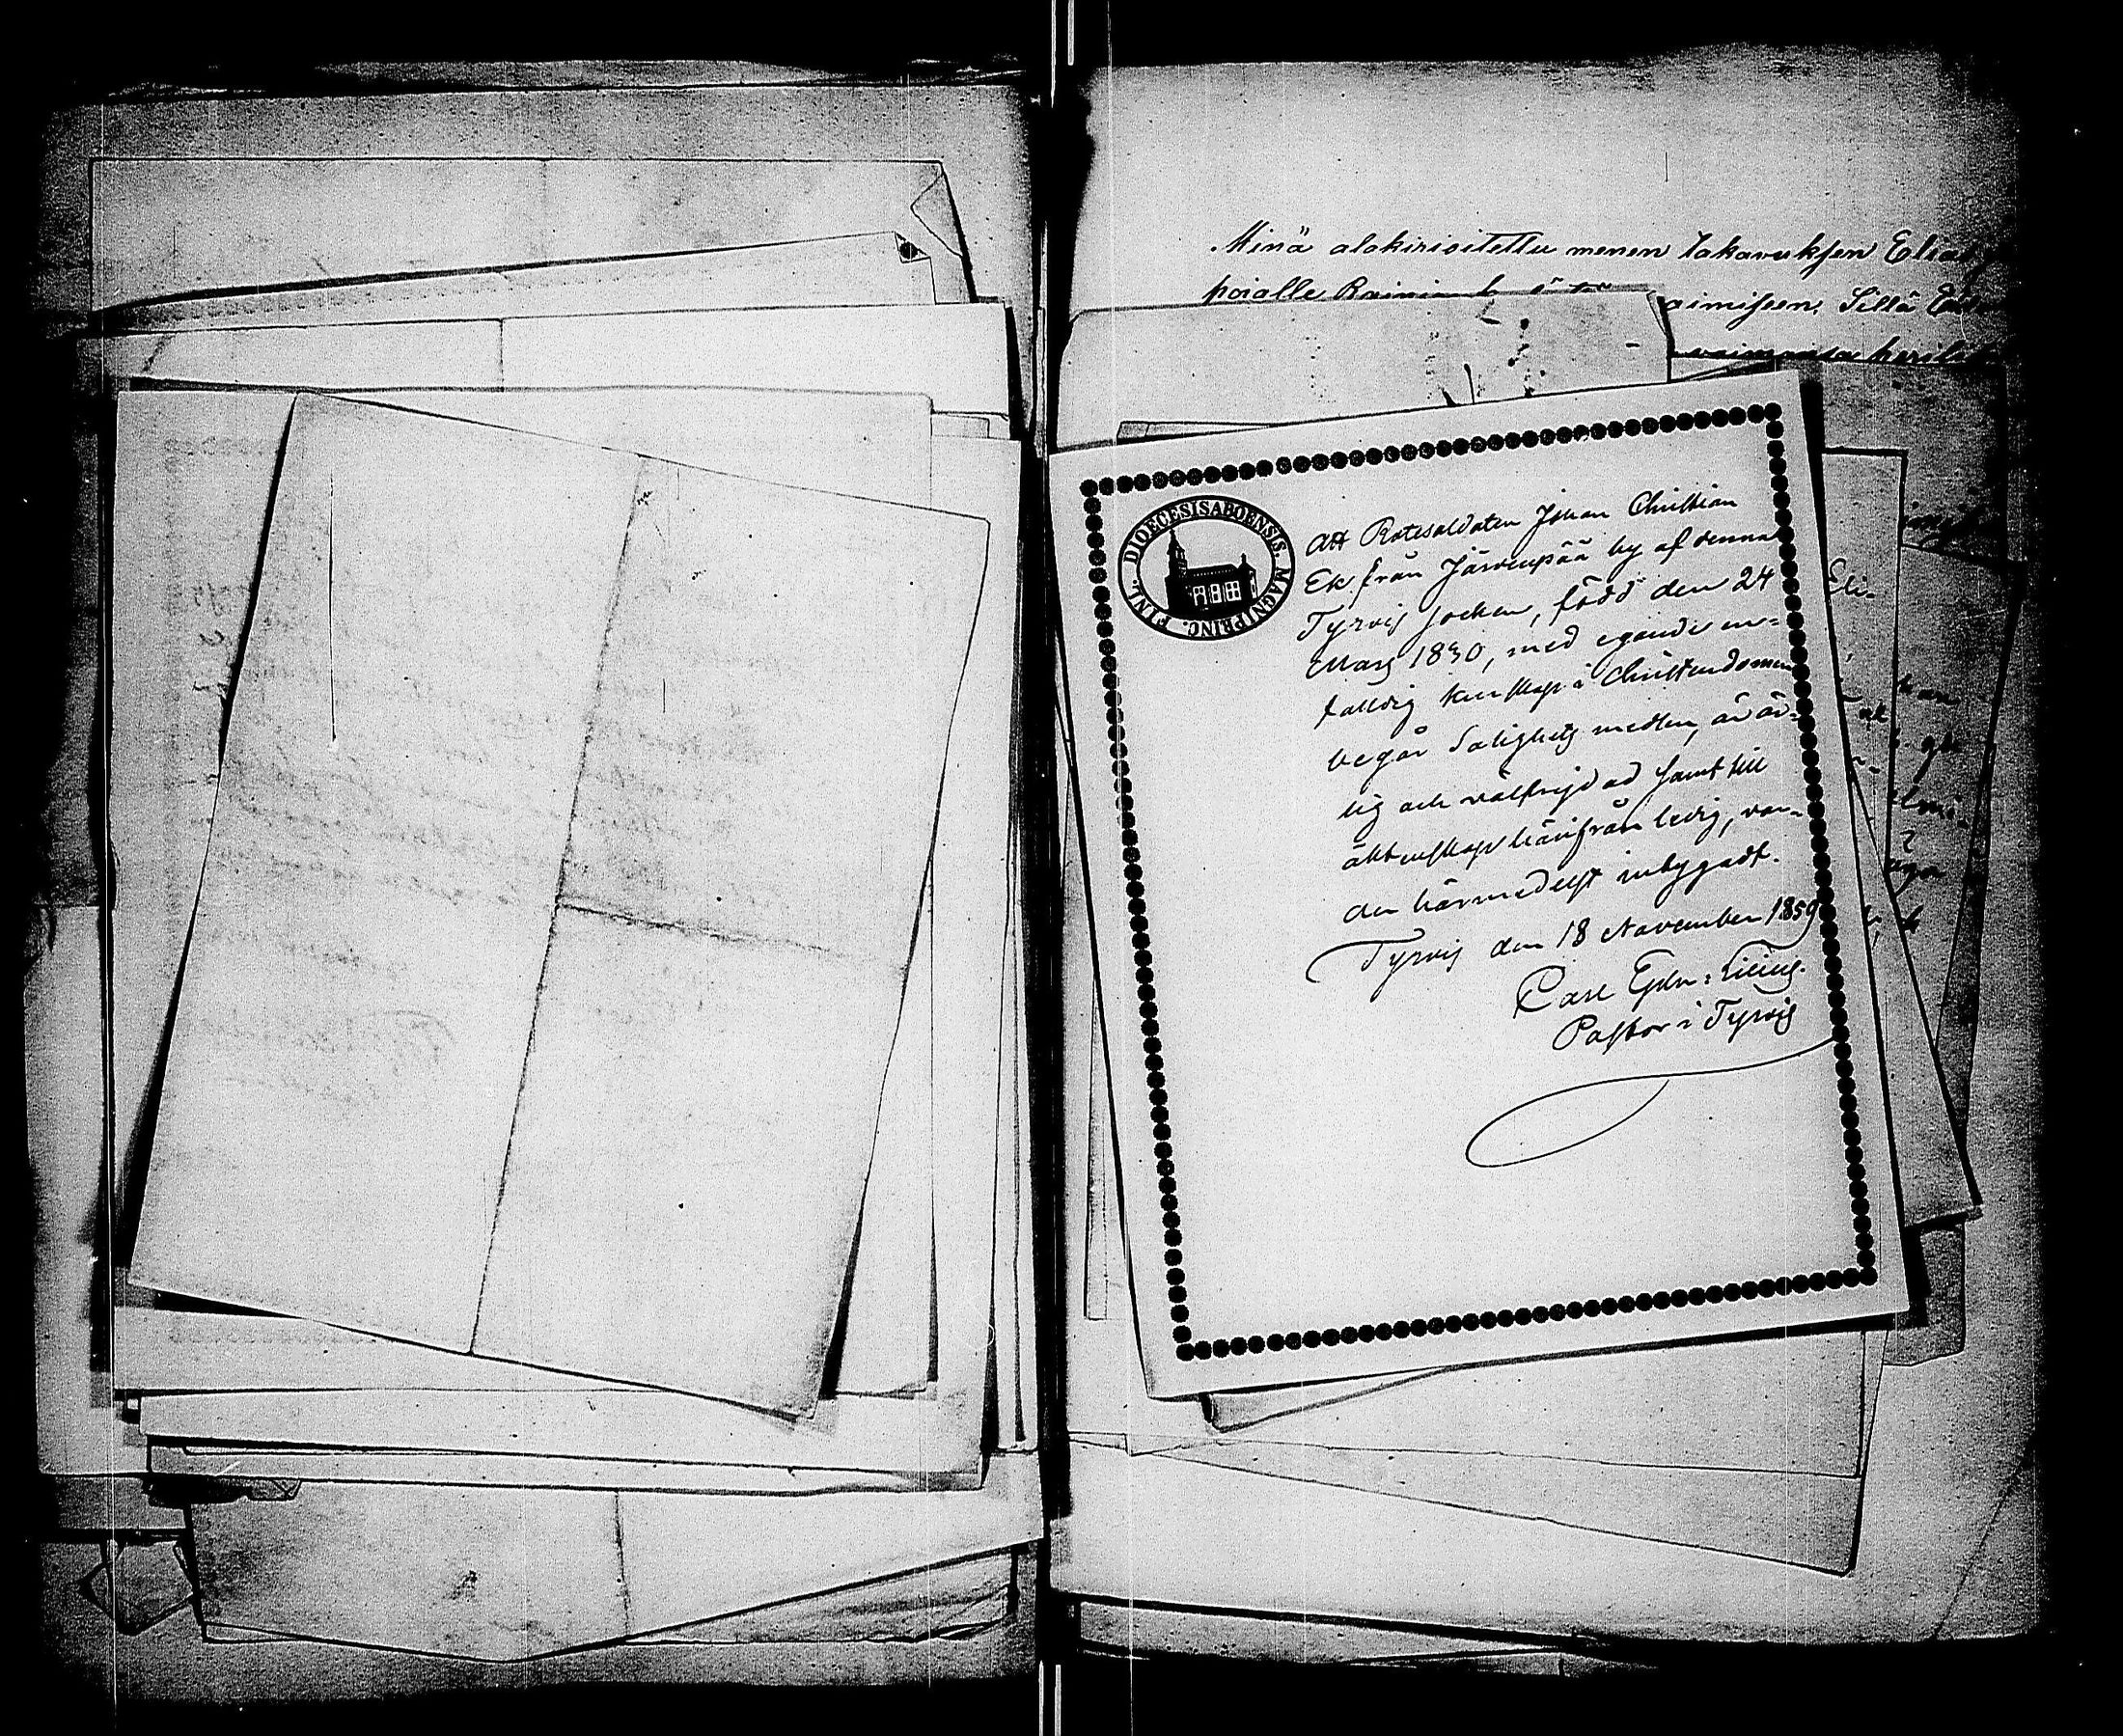 Minä alakirioitettu menen takavuksen Elias
poialle
aimisen. Sillä
DIOECESIS ABOENSIS. MAGNI PRINC. FINL.
Att Rotesoldaten Johan Christian
Ek från Järvenpää by af denna
Tyrvis Socken, född den 24
Mars 1830, med egande en-
faldig kunskap i Christendomen
begår Salighets medlen, är är-
lig och välfrejdad samt till
äktenskap härifrån ledig, var-
der härmedelst intygadt.
Tyrvis den 18 November 1859
Carl Gdn: Lilius.
Pastor i Tyrvis